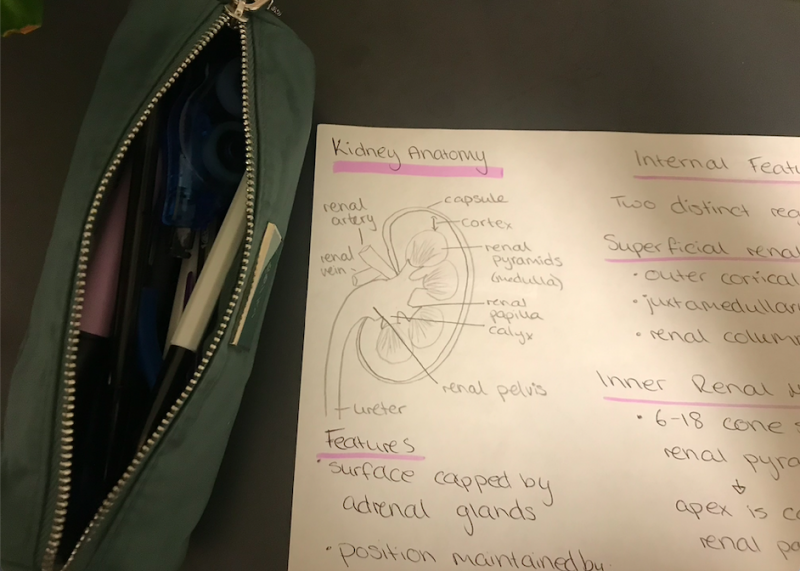 Kidney Anatomy
renal
artery
renal
vein
capsule
cortex
renal
pyramids
(medulla)
renal
papilla
calyx
renal pelvis
ureter
Features
• surface capped by
adrenal glands
• position maintained by
Internal Featu
Two distinct reg
Superficial renal
• outer cortical
• juxtamedullar
• renal colum
Inner Renal
• 6-18 cone s
renal pyra
↓
apex is ca
renal pa